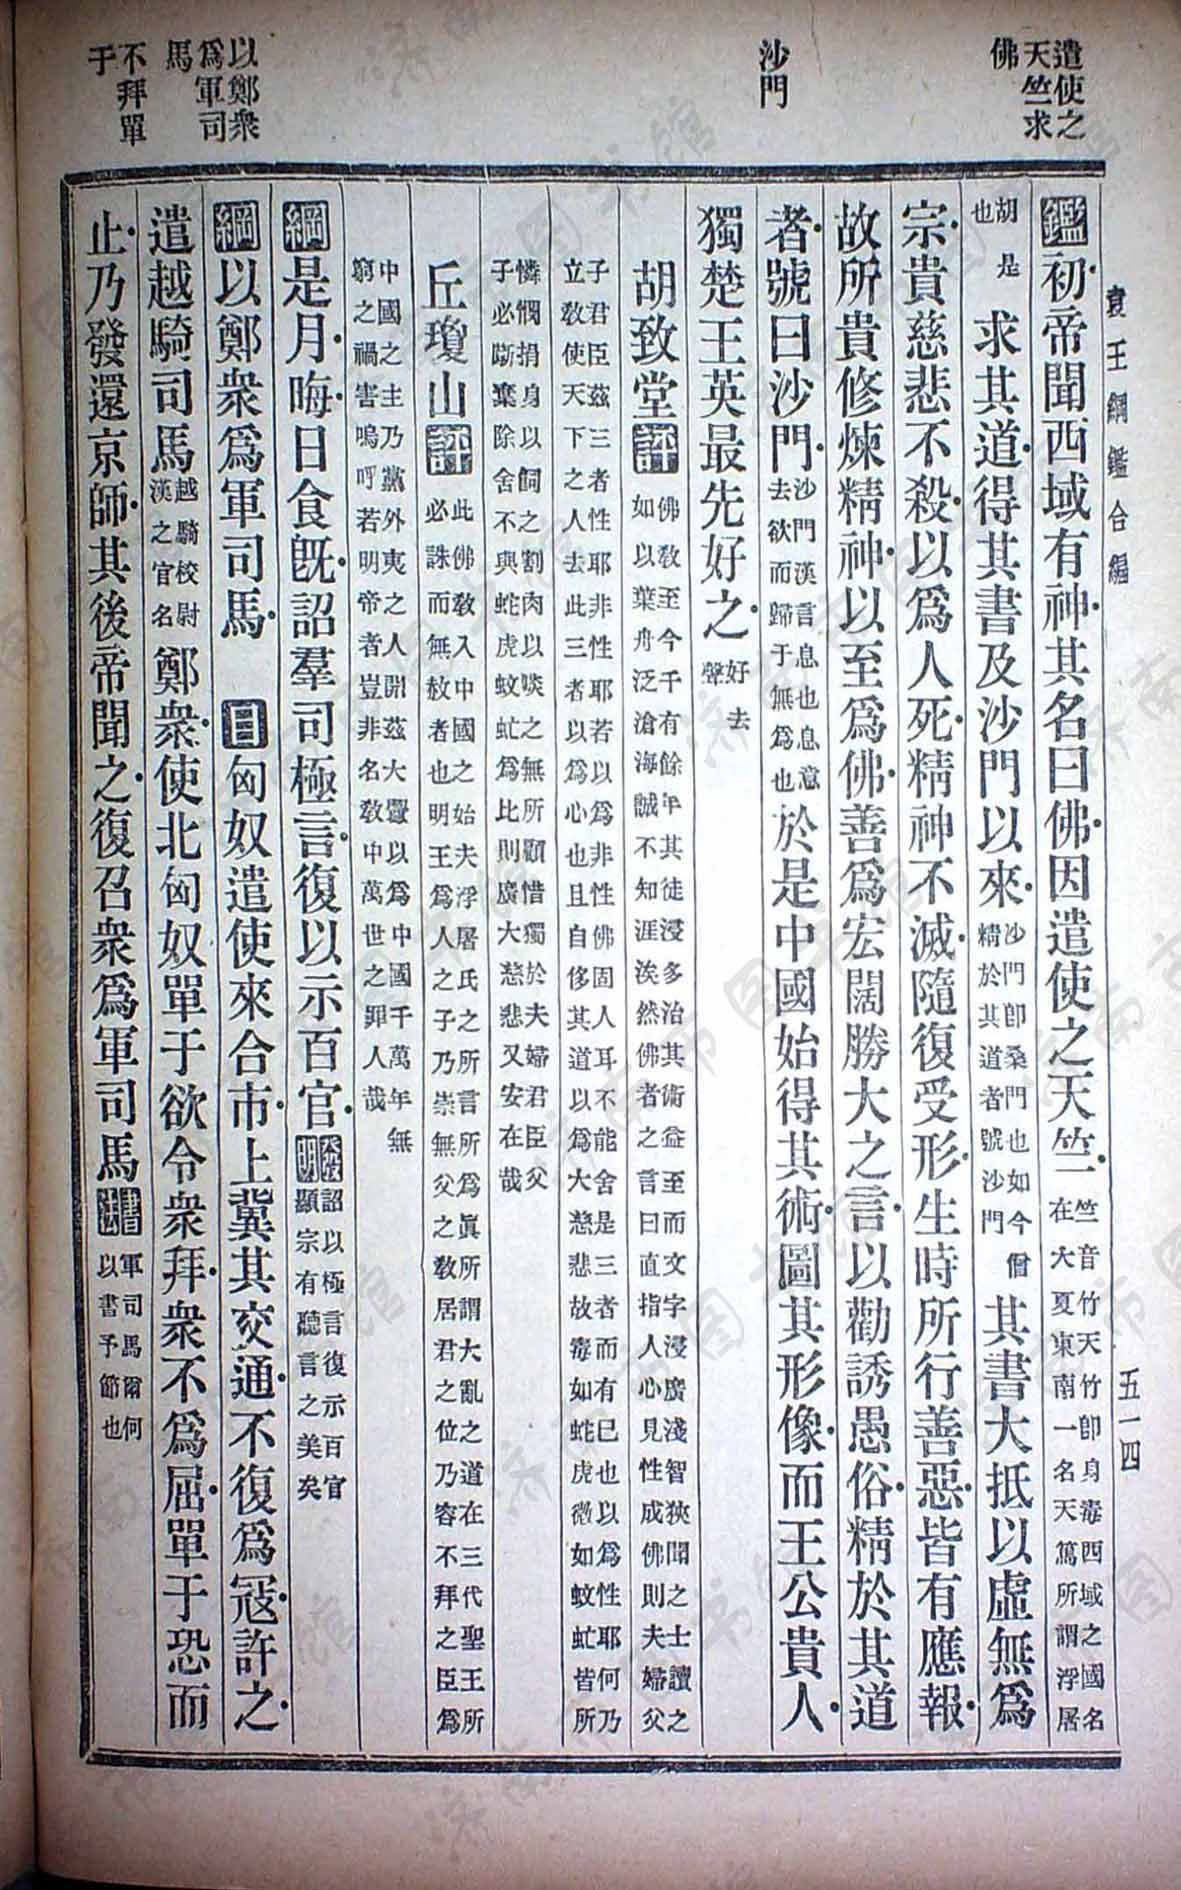 遣使之
天竺求
佛
沙門
以鄭衆
爲軍司
馬
不拜單
于
袁王綱鑑合編
五一四
鑑初帝聞西域有神其名曰佛因遣使之天竺竺音竹天竹卽身毒西域之國名在大夏東南一名天篤所謂浮屠
胡是也求其道得其書及沙門以來沙門卽桑門也如今僧精於其道者號沙門其書大抵以虛無爲
宗貴慈悲不殺以爲人死精神不滅隨復受形生時所行善惡皆有應報
故所貴修煉精神以至爲佛善爲宏闊勝大之言以勸誘愚俗精於其道
者號曰沙門沙門漢言息也息意去欲而歸于無爲也於是中國始得其術圖其形像而王公貴人
獨楚王英最先好之好去聲
胡致堂評佛敎至今千有餘年其徒浸多治其術益至而文字浸廣淺智狹聞之士讀之如以葉舟泛滄海誠不知涯涘然佛者之言曰直指人心見性成佛則夫婦父
子君臣茲三者性耶非性耶若以爲非性佛固人耳不能舍是三者而有已也以爲性耶何乃立敎使天下之人去此三者以爲心也且自侈其道以爲大慈悲故毒如蛇虎微如蚊虻皆所
憐憫捐身以飼之割肉以啖之無所顧惜獨於夫婦君臣父子必斷棄除舍不與蛇虎蚊虻爲比則廣大慈悲又安在哉
丘瓊山評此佛敎入中國之始夫浮屠氏之所言所爲眞所謂大亂之道在三代聖王所必誅而無赦者也明王爲人之子乃崇無父之敎居君之位乃容不拜之臣爲
中國之主乃黨外夷之人開茲大釁以爲中國千萬年無窮之禍害嗚呼若明帝者豈非名敎中萬世之罪人哉
綱是月晦日食旣詔羣司極言復以示百官發明詔以極言復示百官顯宗有聽言之美矣
綱以鄭衆爲軍司馬 目匈奴遣使來合市上冀其交通不復爲寇許之
遣越騎司馬越騎校尉漢之官名鄭衆使北匈奴單于欲令衆拜衆不爲屈單于恐而
止乃發還京師其後帝聞之復召衆爲軍司馬書法軍司馬爾何以書予節也